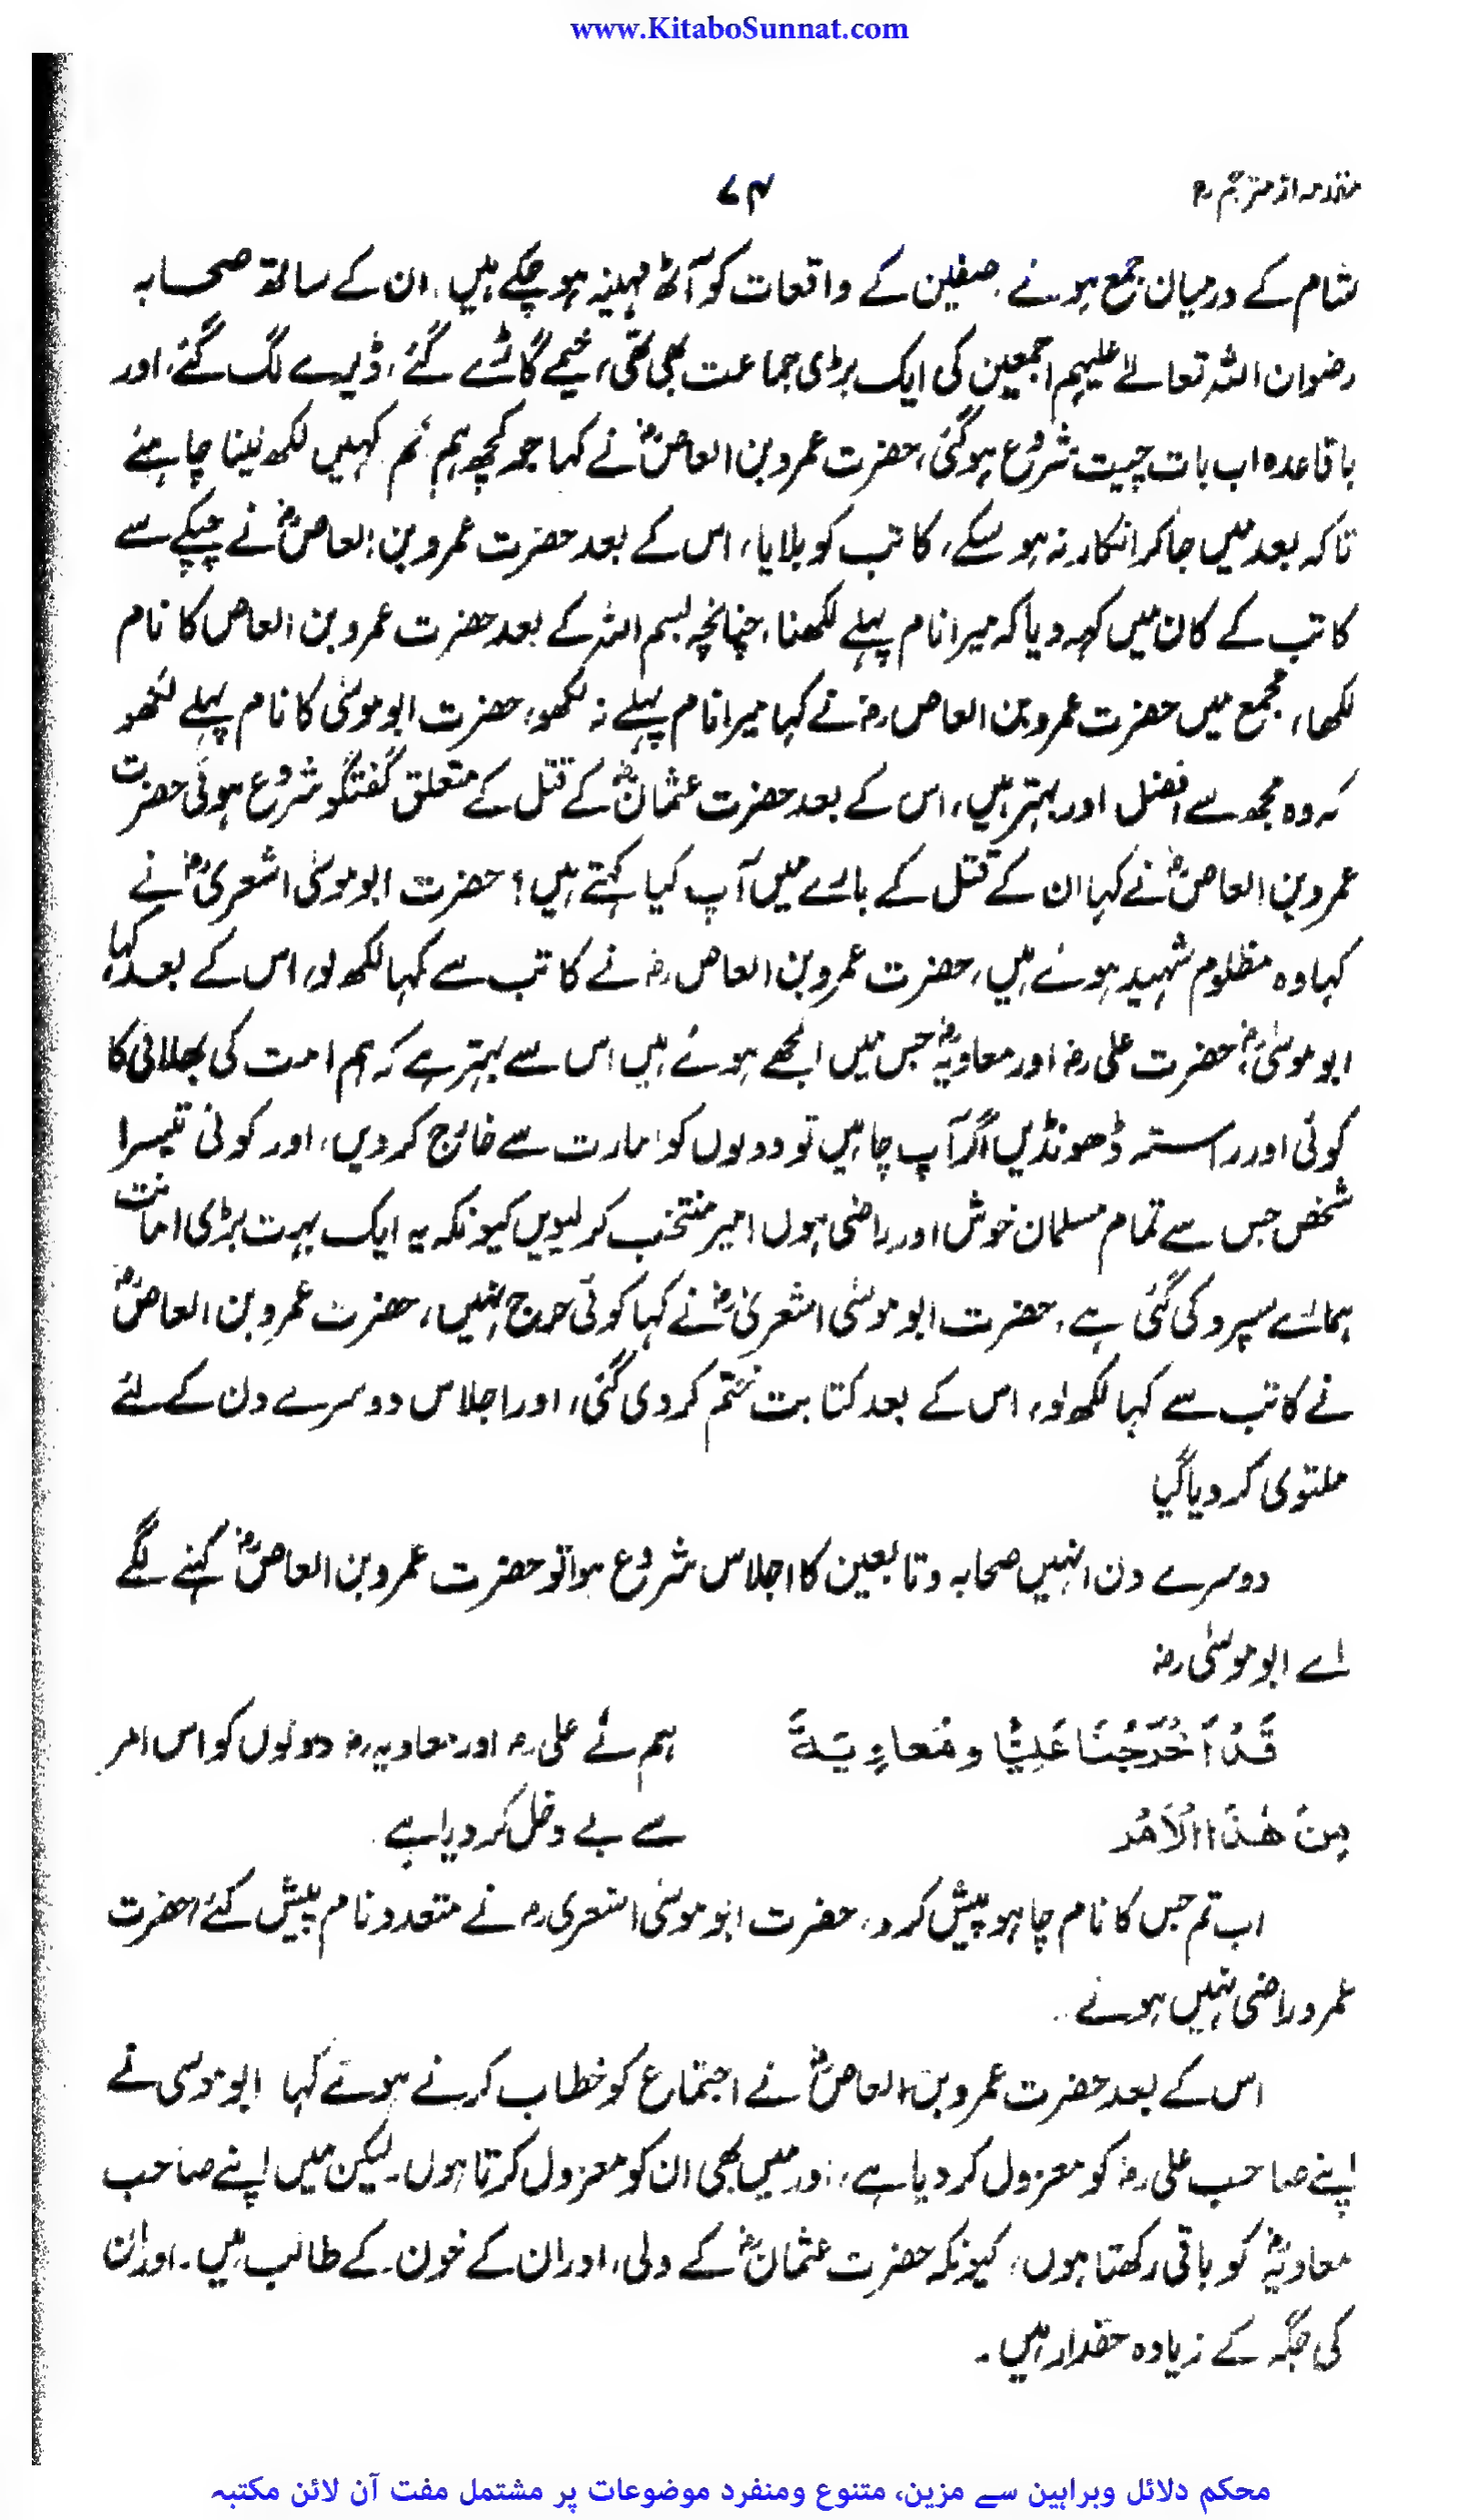 www.KitaboSunnat.com
مقدمہ از مترجم رہ
۷۴
شام کے درمیان جمع ہوئے، صفین کے واقعات کو آٹھ مہینہ ہو چکے ہیں، ان کے ساتھ صحابہ
رضوان اللہ تعالےٰ علیہم اجمعین کی ایک بڑی جماعت بھی تھی، خیمے گاڑے گئے، ڈیرے لگ گئے، اور
باقاعدہ اب بات چیت شروع ہوگئی، حضرت عمرو بن العاصؓ نے کہا جو کچھ ہم تم کہیں لکھ لینا چاہئے
تاکہ بعد میں جا کر انکار نہ ہو سکے، کاتب کو بلایا، اس کے بعد حضرت عمرو بن العاصؓ نے چپکے سے
کاتب کے کان میں کہہ دیا کہ میرا نام پہلے لکھنا، چنانچہ بسم اللہ کے بعد حضرت عمرو بن العاص کا نام
لکھا، مجمع میں حضرت عمرو بن العاص رضہ نے کہا میرا نام پہلے نہ لکھو، حضرت ابو موسیٰ کا نام پہلے لکھو
کہ وہ مجھ سے افضل اور بہتر ہیں، اس کے بعد حضرت عثمانؓ کے قتل کے متعلق گفتگو شروع ہوئی حضرت
عمرو بن العاصؓ نے کہا ان کے قتل کے بارے میں آپ کیا کہتے ہیں؟ حضرت ابو موسیٰ اشعریؓ نے
کہا وہ مظلوم شہید ہوئے ہیں، حضرت عمرو بن العاص رضہ نے کاتب سے کہا لکھ لو، اس کے بعد کہا،
ابو موسیٰؓ! حضرت علی رضہ اور معاویہؓ جس میں الجھے ہوئے ہیں اس سے بہتر ہے کہ ہم امت کی بھلائی کا
کوئی اور راستہ ڈھونڈیں اگر آپ چاہیں تو دونوں کو امارت سے خارج کر دیں، اور کوئی تیسرا
شخص جس سے تمام مسلمان خوش اور راضی ہوں امیر منتخب کر لیویں کیونکہ یہ ایک بہت بڑی امانت
ہمارے سپرد کی گئی ہے، حضرت ابو موسیٰ اشعریؓ نے کہا کوئی حرج نہیں، حضرت عمرو بن العاصؓ
نے کاتب سے کہا لکھ لو، اس کے بعد کتابت ختم کر دی گئی، اور اجلاس دوسرے دن کے لئے
ملتوی کر دیا گیا
دوسرے دن انہیں صحابہ و تابعین کا اجلاس شروع ہوا تو حضرت عمرو بن العاصؓ کہنے لگے
اے ابو موسیٰ رضہ
قَدْ اَخْرَجْنَا عَلِيًّا وَمُعَاوِيَةَ
ہم نے علی رضہ اور معاویہ رضہ دونوں کو اس امر
مِنْ هٰذَا الْاَمْرِ
سے بے دخل کر دیا ہے
اب تم جس کا نام چاہو پیش کرو، حضرت ابو موسیٰ اشعری رضہ نے متعدد نام پیش کئے حضرت
عمرو راضی نہیں ہوئے
اس کے بعد حضرت عمرو بن العاصؓ نے اجتماع کو خطاب کرتے ہوئے کہا ابو موسیٰ نے
اپنے صاحب علی رضہ کو معزول کر دیا ہے، اور میں بھی ان کو معزول کرتا ہوں۔ لیکن میں اپنے صاحب
معاویہؓ کو باقی رکھتا ہوں، کیونکہ حضرت عثمانؓ کے ولی، اور ان کے خون کے طالب ہیں۔ اور ان
کی جگہ کے زیادہ حقدار ہیں۔
محکم دلائل وبراہین سے مزین، متنوع ومنفرد موضوعات پر مشتمل مفت آن لائن مکتبہ